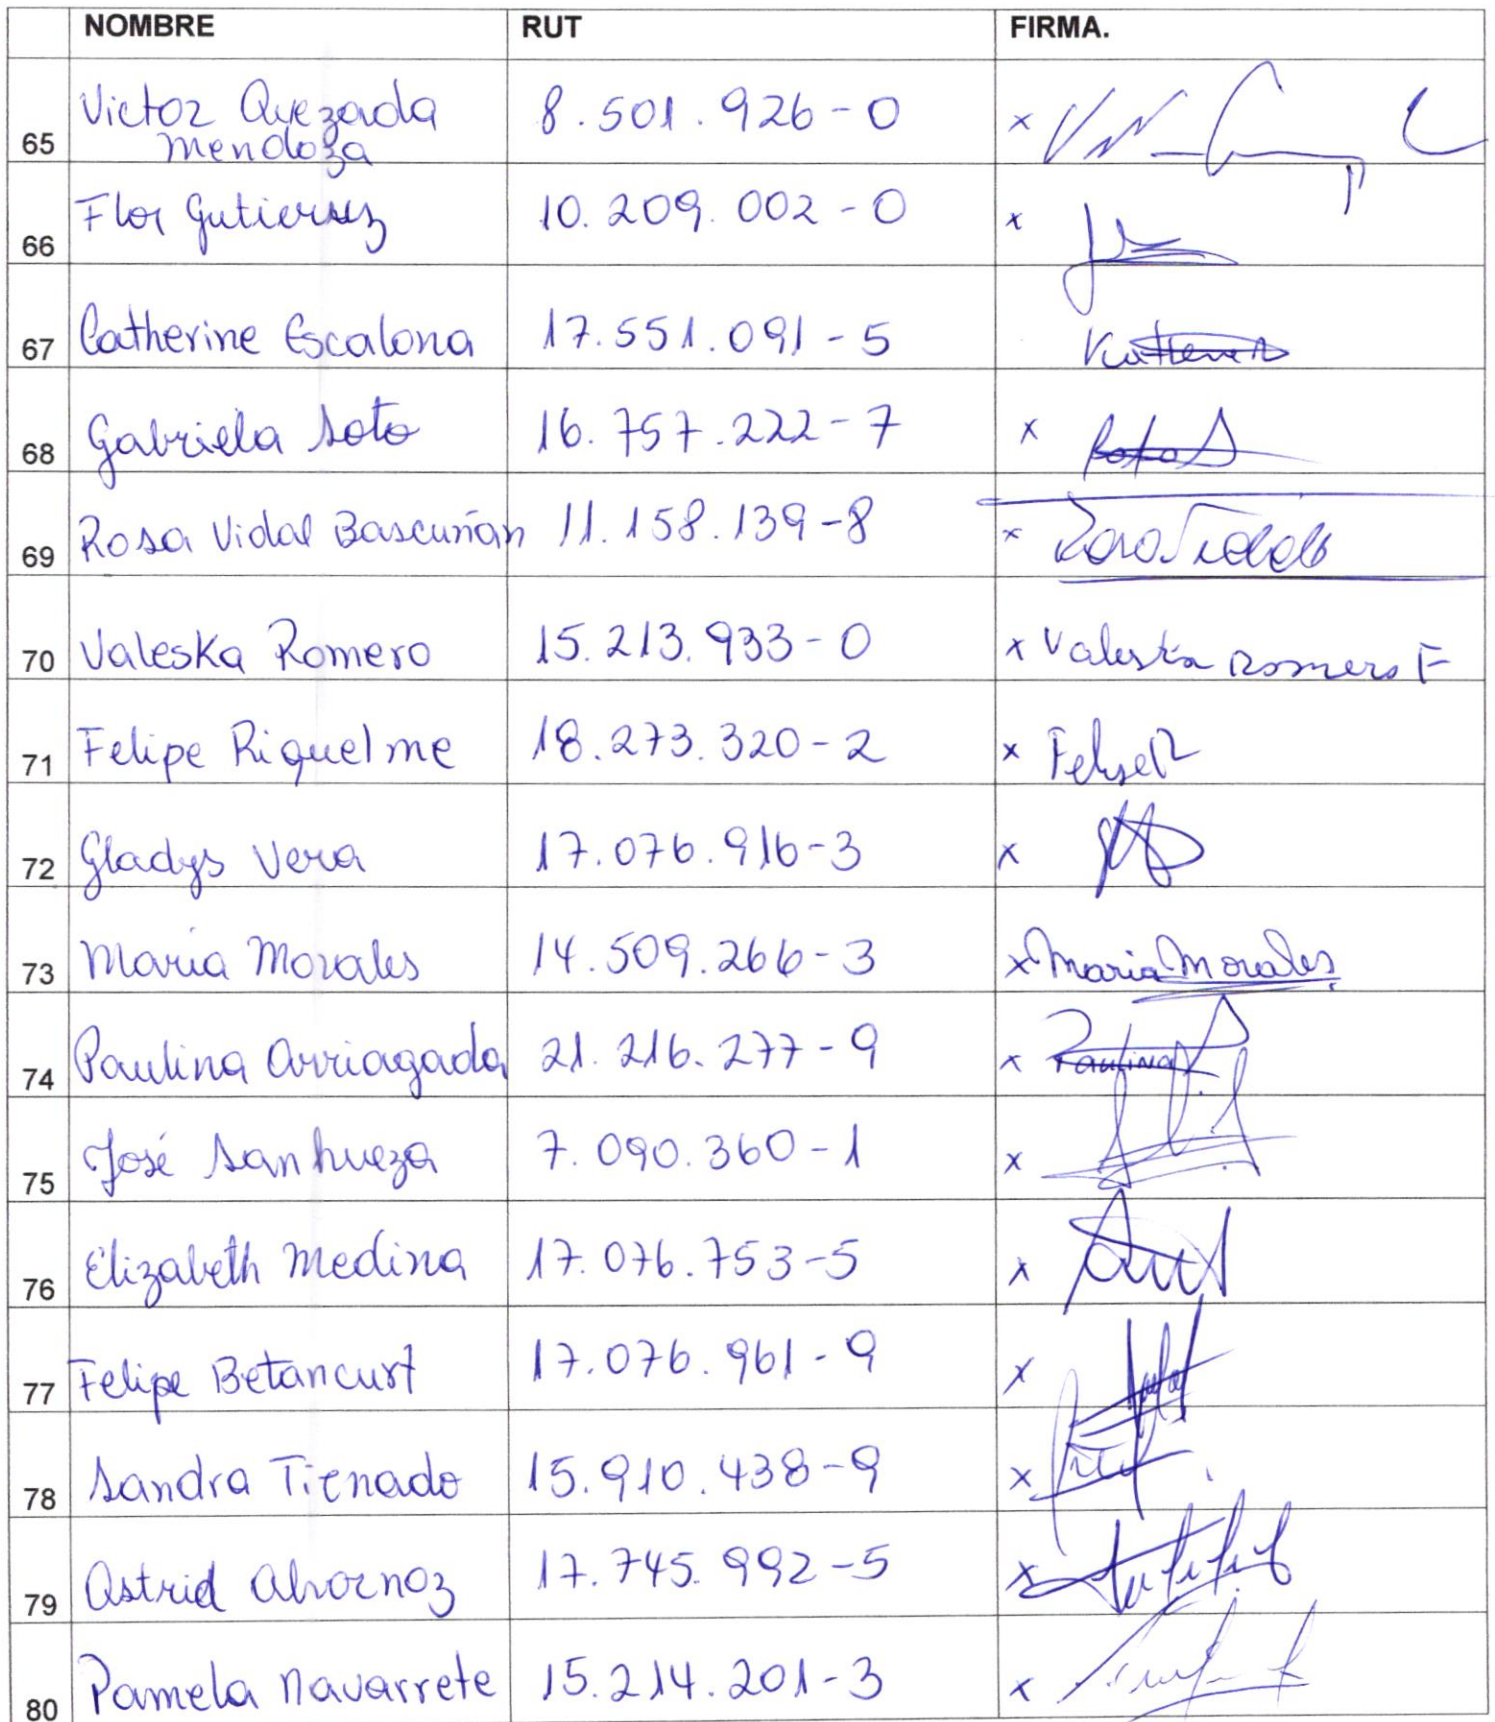 NOMBRE RUT FIRMA.
65 Victor Quezada Mendoza 8.501.926-0 x
66 Flor Gutierrez 10.209.002-0 x
67 Catherine Escalona 17.551.091-5
68 Gabriela Soto 16.757.222-7 x
69 Rosa Vidal Bascuñan 11.158.139-8 x
70 Valeska Romero 15.213.933-0 x Valeska Romero F
71 Felipe Riquelme 18.273.320-2 x Felipe R
72 Gladys Vera 17.076.916-3 x
73 Maria Morales 14.509.266-3 x Maria Morales
74 Paulina Arriagada 21.216.277-9 x Paulina
75 José Sanhueza 7.090.360-1 x
76 Elizabeth Medina 17.076.753-5 x
77 Felipe Betancurt 17.076.961-9 x
78 Sandra Tienado 15.910.438-9 x
79 Astrid Alvornoz 17.745.992-5 x
80 Pamela Navarrete 15.214.201-3 x